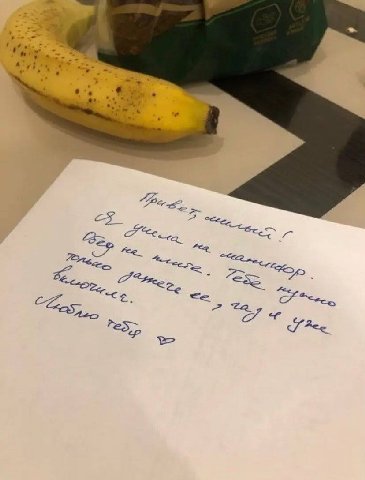 Привет, милый!
Я ушла на маникюр.
Обед на плите. Тебе нужно
только зажечь ее, газ я уже
включила.
Люблю тебя ♡